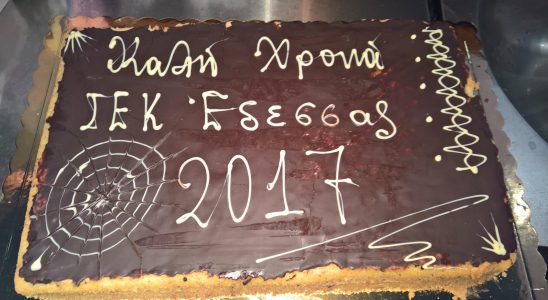 Καλή Χρονιά
ΣΕΚ Έδεσσας
2017